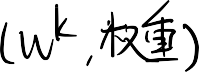 (W^k, 权重)